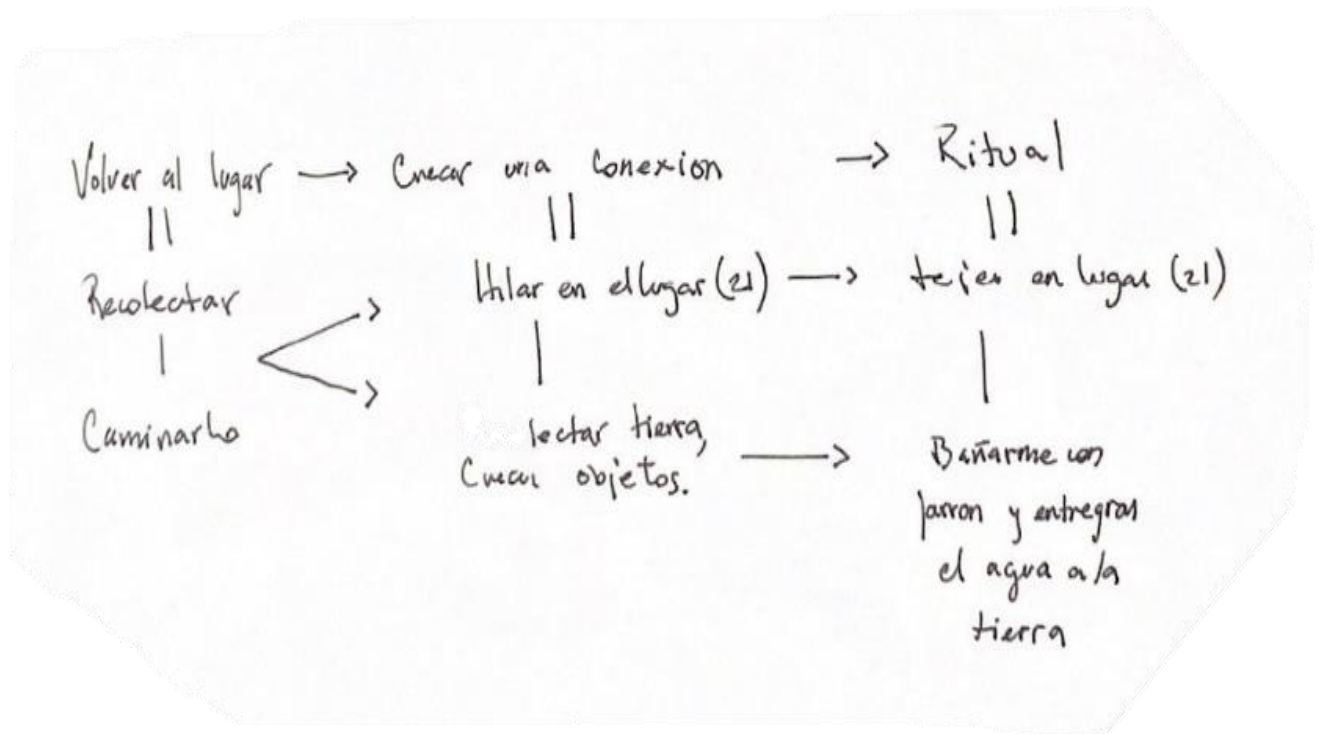 Volver al lugar → Crear una conexion → Ritual
||
||
||
Recolectar
Hilar en el lugar (21) → tejer en lugar (21)
|
|
|
Caminarlo
lectar tierra,
Crear objetos. →
Bañarme con
jarron y entregar
el agua a la
tierra